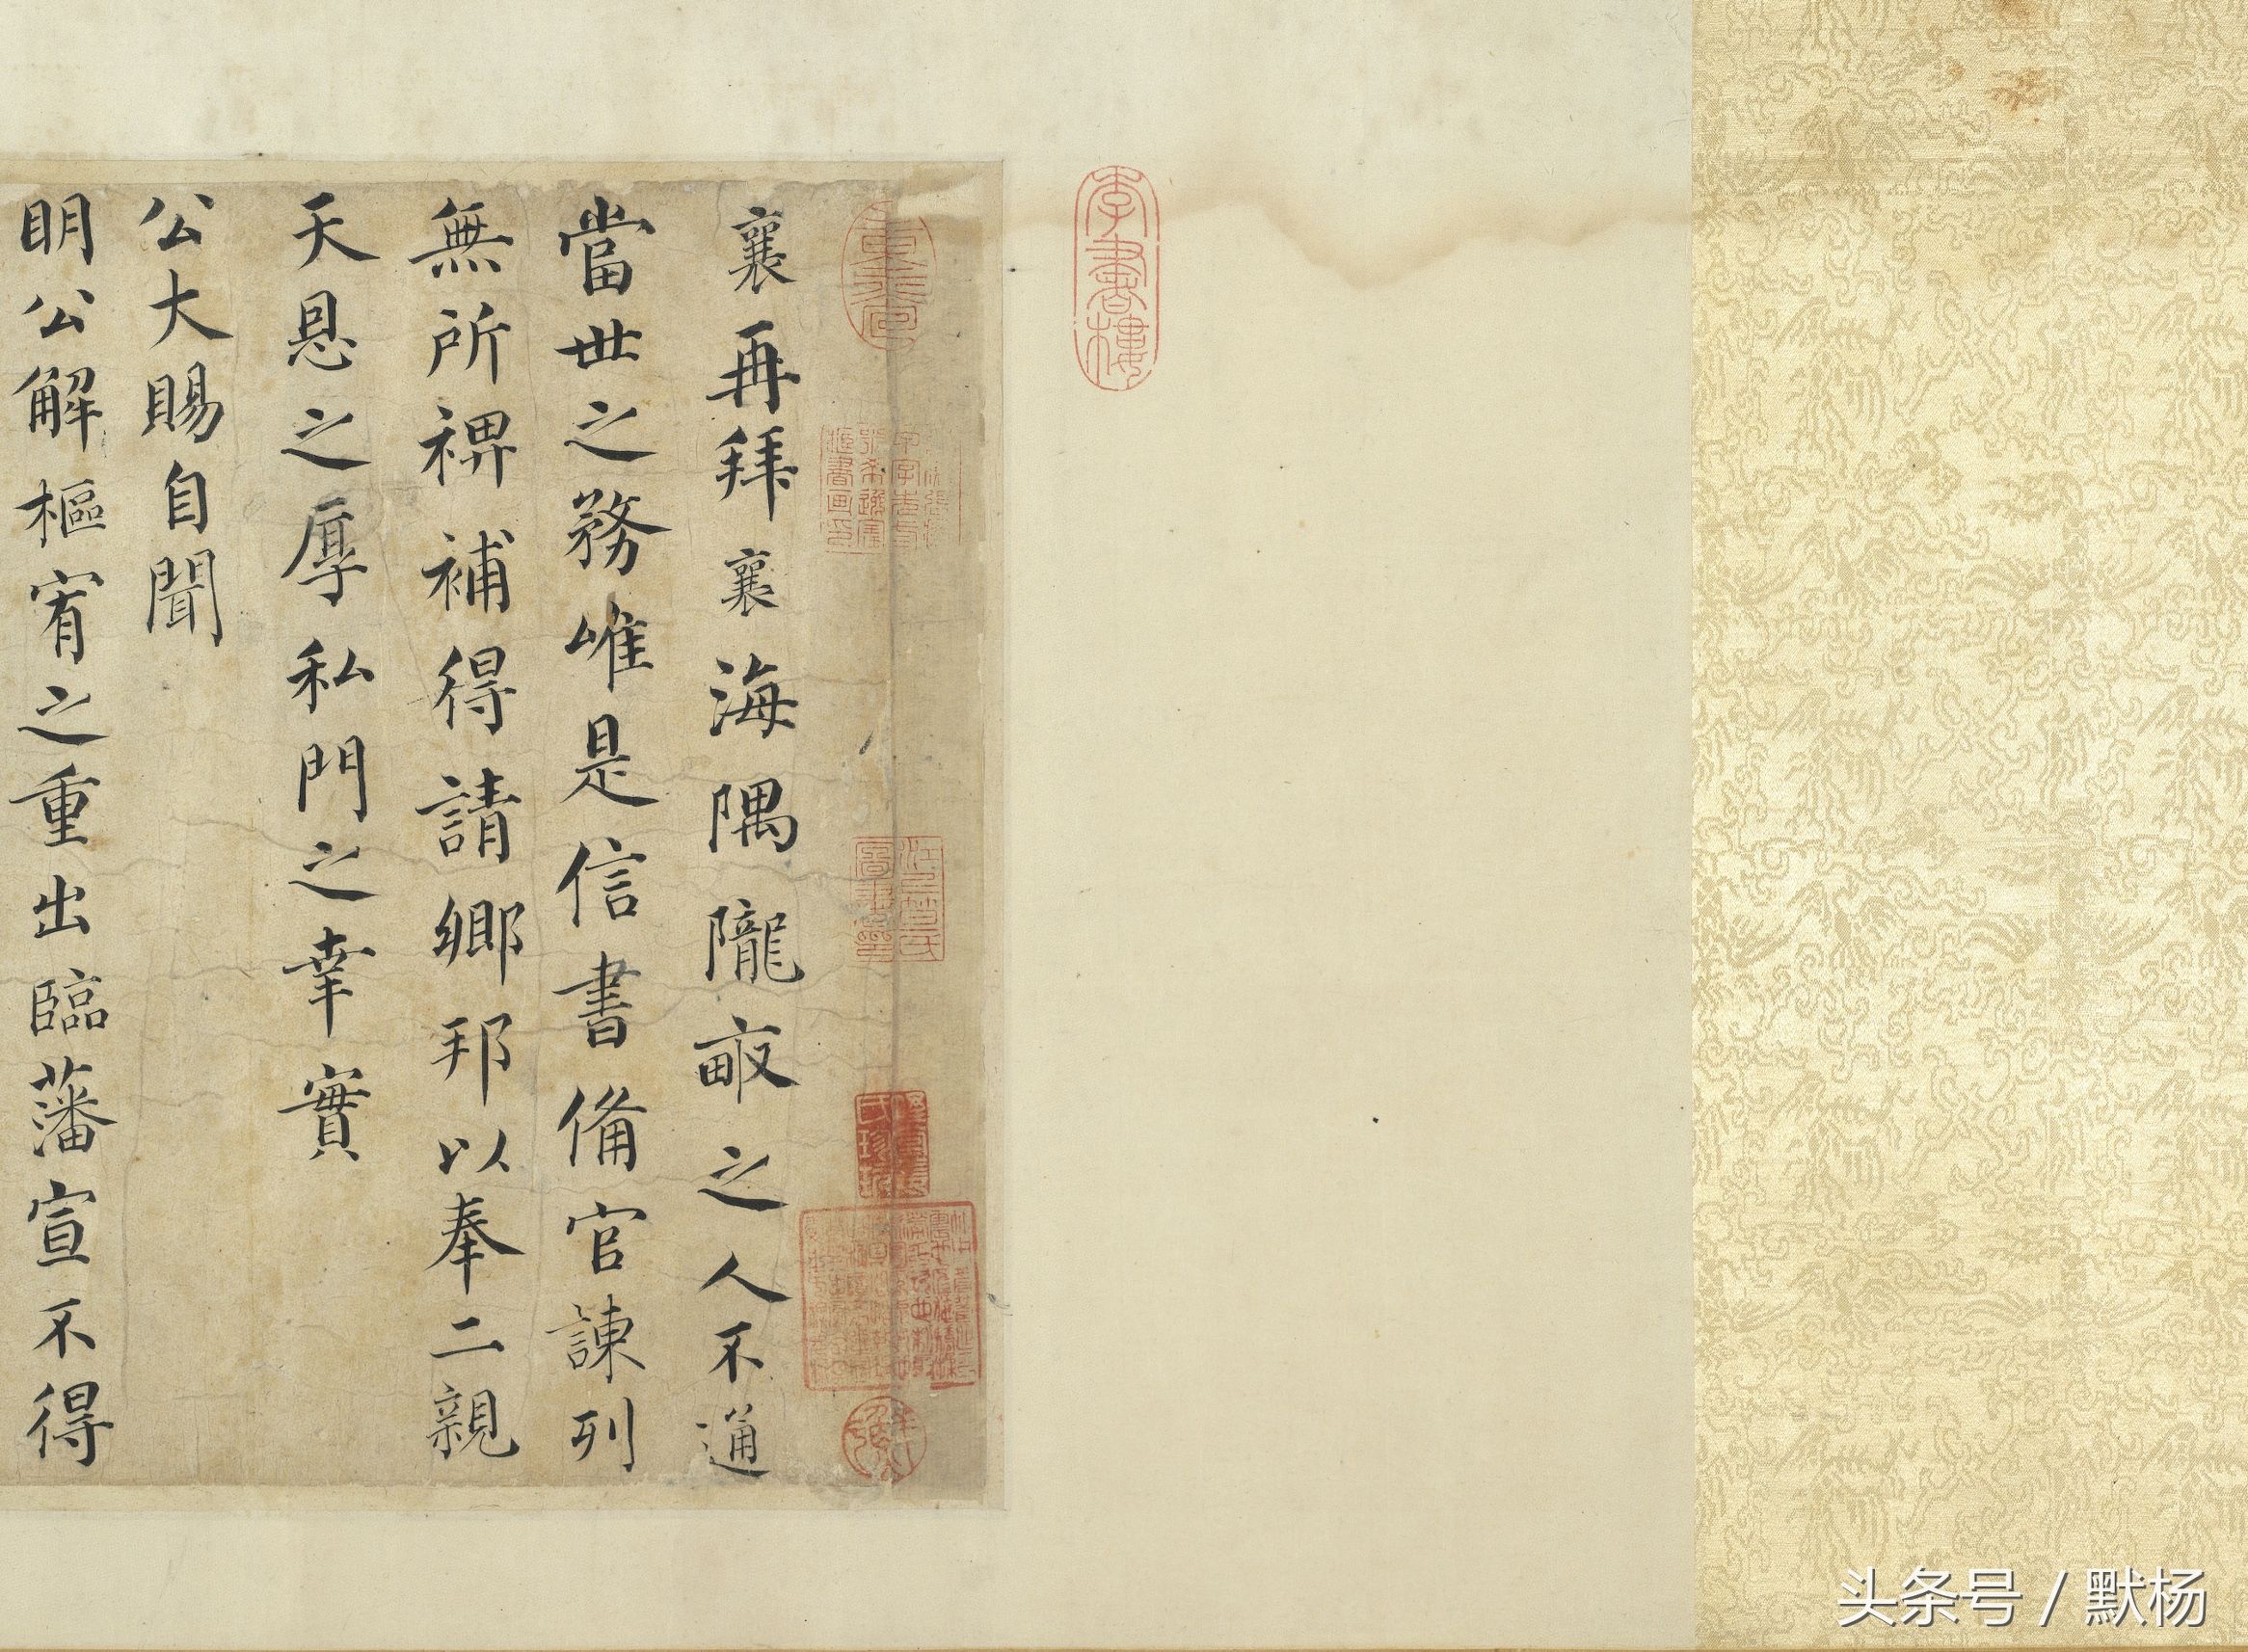 襄再拜襄海隅隴畝之人不通
當世之務唯是信書備官諫列
無所裨補得請鄉邦以奉二親
天恩之厚私門之幸實
公大賜自聞
明公解樞宥之重出臨藩宣不得
季書樓
头条号 / 默杨